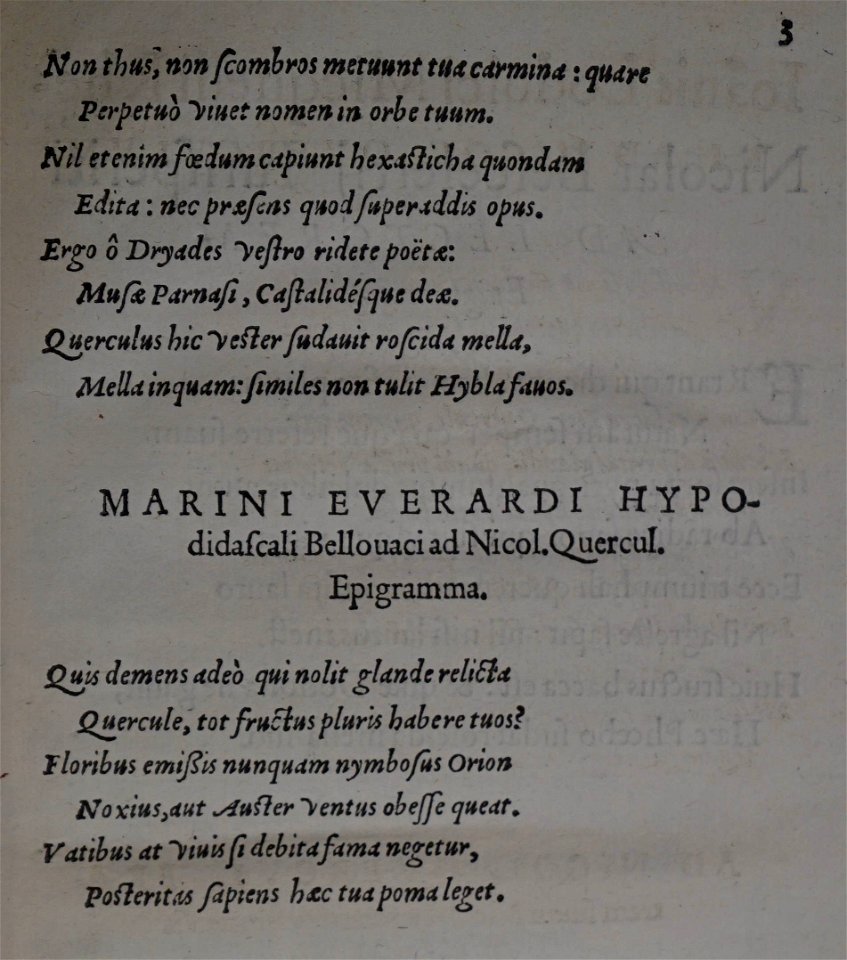 3
Non thus, non ſcombros metuunt tua carmina : quare
Perpetuò viuet nomen in orbe tuum.
Nil etenim fœdum capiunt hexaſticha quondam
Edita : nec præſens quod ſuperaddis opus.
Ergo ô Dryades veſtro ridete poëtæ:
Muſæ Parnaſi, Caſtalidéſque deæ.
Querculus hic veſter ſudauit roſcida mella,
Mella inquam: ſimiles non tulit Hybla fauos.
MARINI EVERARDI HYPO-
didaſcali Bellouaci ad Nicol. Quercul.
Epigramma.
Quis demens adeò qui nolit glande relicta
Quercule, tot fructus pluris habere tuos?
Floribus emißis nunquam nymboſus Orion
Noxius, aut Auſter ventus obeſſe queat.
Vatibus at viuis ſi debita fama negetur,
Poſteritas ſapiens hæc tua poma leget.